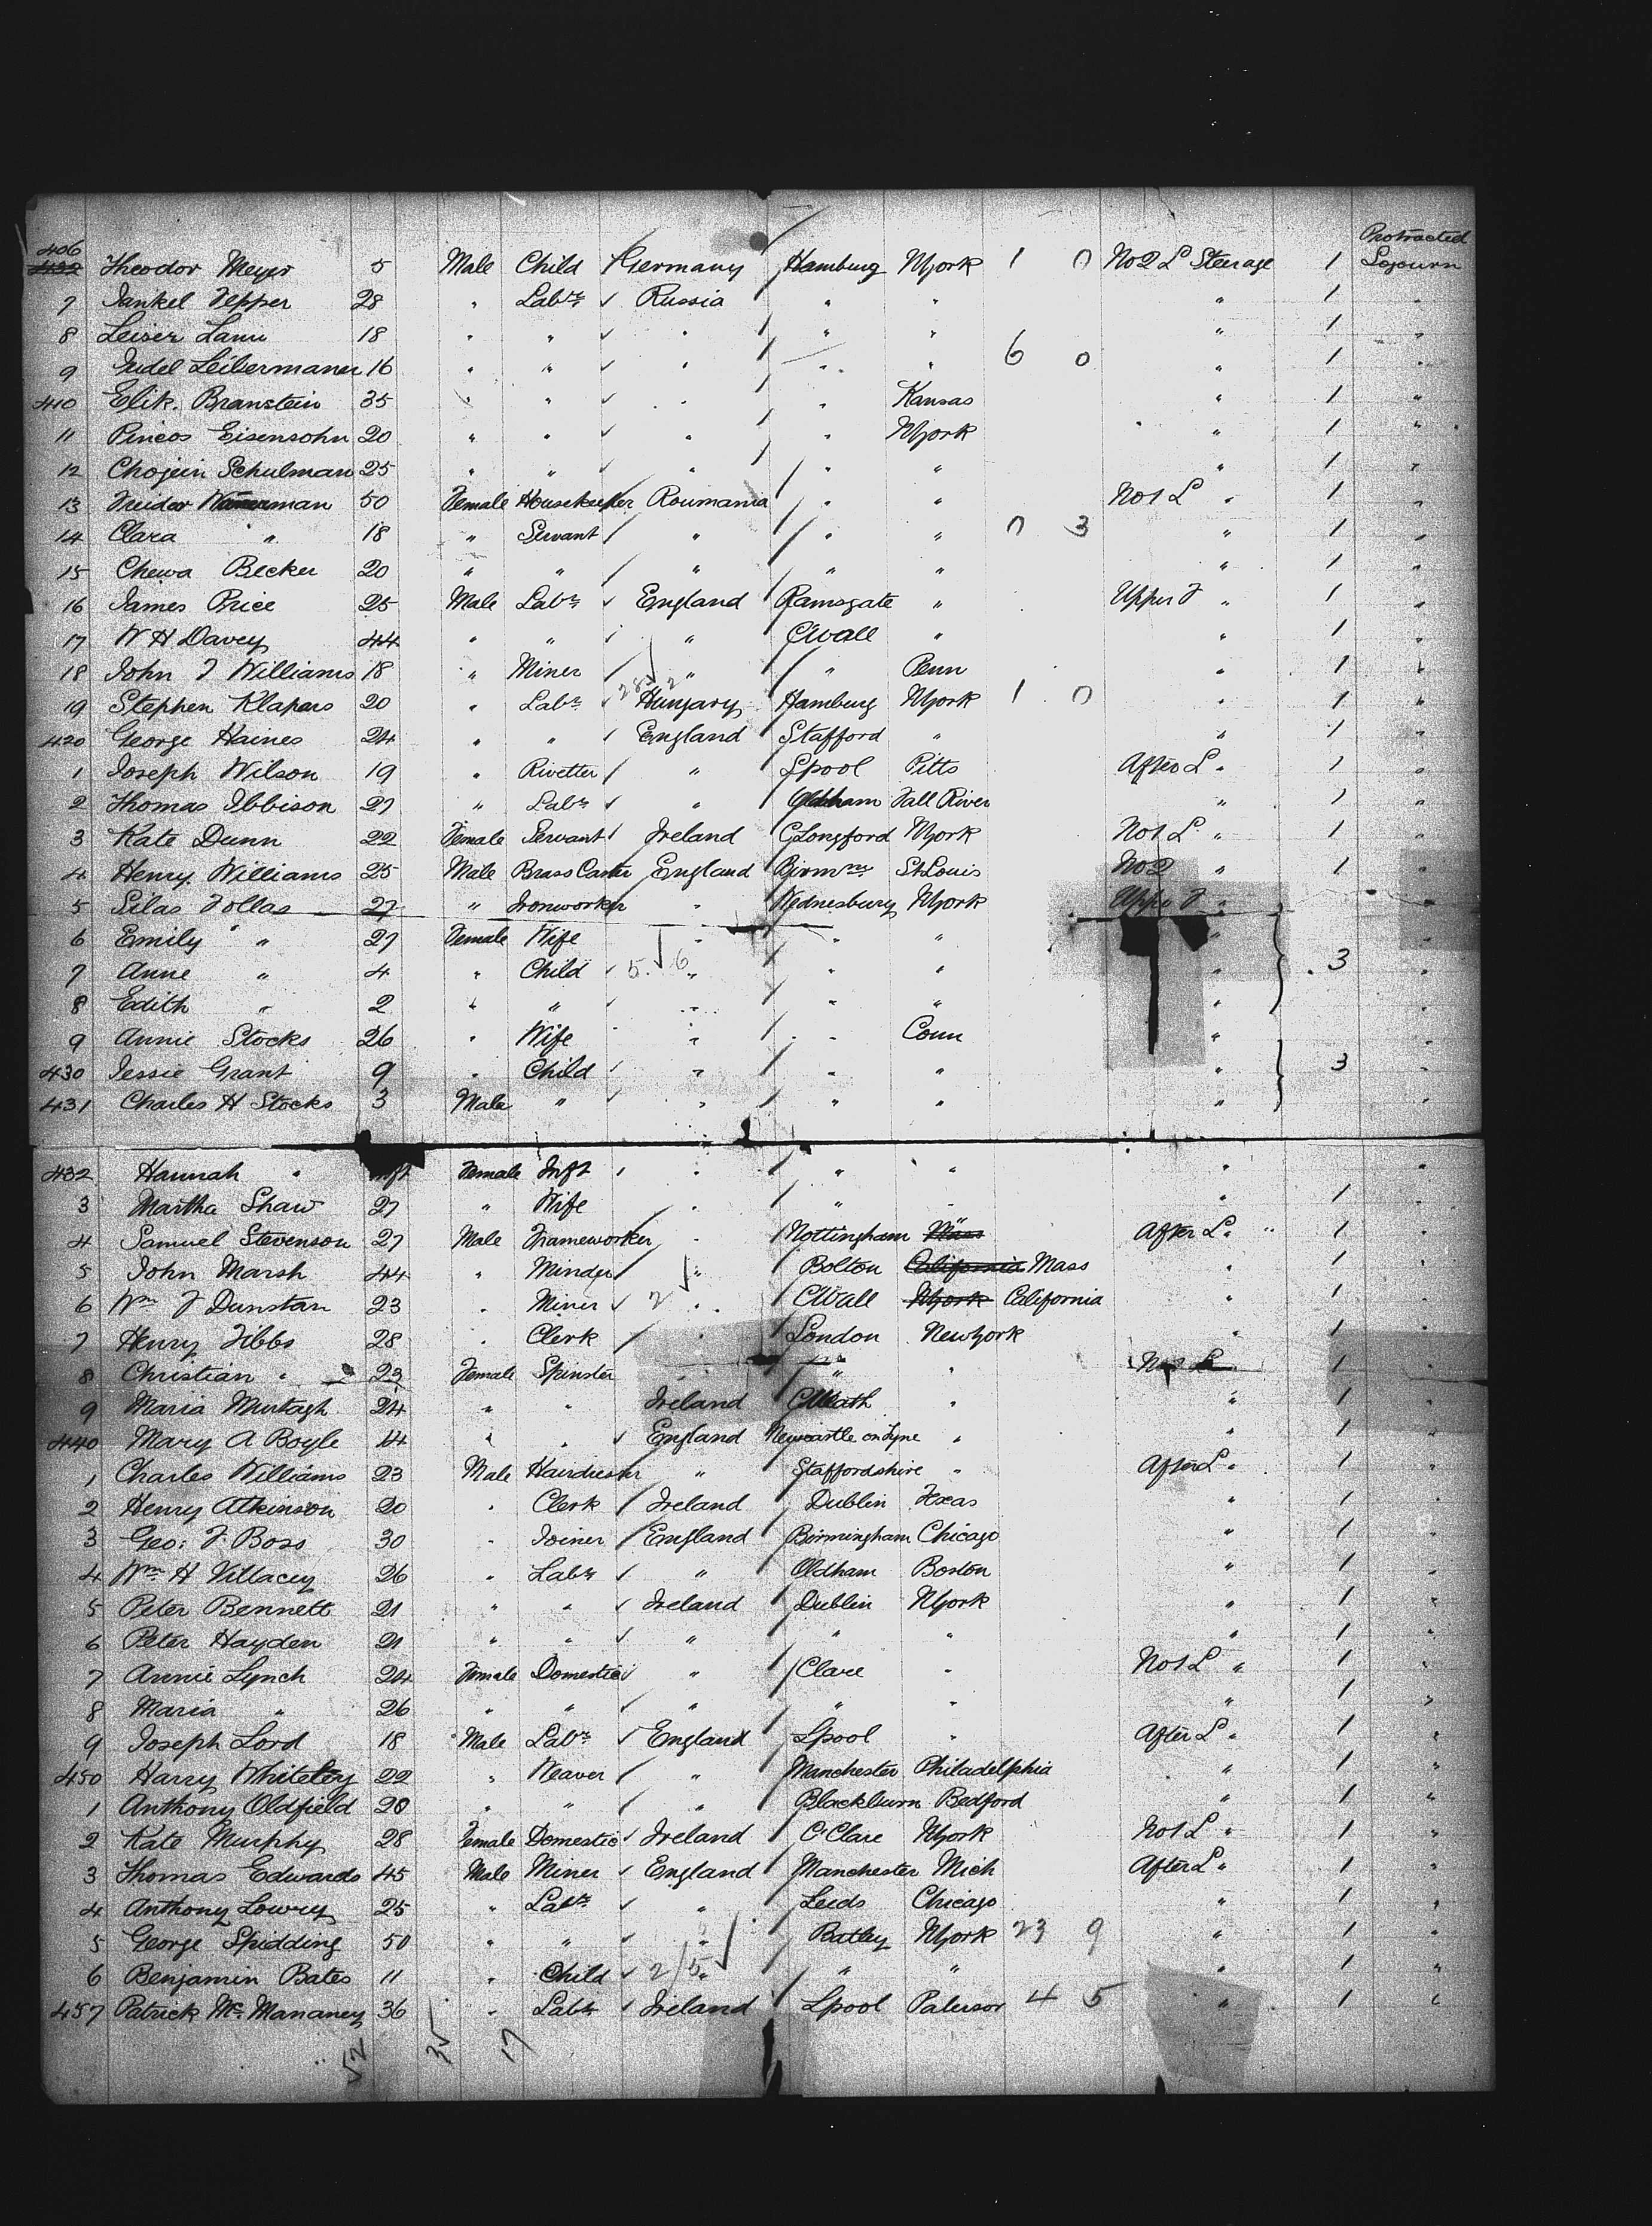 Protracted
406 Theodor Meyer 5 Male Child Germany Hamburg NYork 1 0 No 2 L Steerage 1 Sojourn
7 Jankel Tepper 28 " Labr Russia " " " 1 "
8 Leiser 18 " " " " " " 1 "
9 Judel Leibermaner 16 " " " " " 6 0 " 1 "
410 Elik. Branstein 35 " " " " Kansas " 1 "
11 Pincos Eisensohn 20 " " " " NYork " 1 "
12 Chojein Schulman 25 " " " " " " 1 "
13 50 Female Housekeeper Roumania " " No 1 L " 1 "
14 Clara " 18 " Servant " " " 0 3 " 1 "
15 Chewa Becker 20 " " " " " " 1 "
16 James Price 25 Male Labr England Ramsgate " Upper F " 1 "
17 W H Davey 44 " " " CWall " " 1 "
18 John J Williams 18 " Miner " " Penn " 1 "
19 Stephen Klapers 20 " Labr Hungary Hamburg NYork 1 0 " 1 "
420 George Haines 24 " " England Stafford " " 1 "
1 Joseph Wilson 19 " Rivetter " Lpool Pitts After L " 1 "
2 Thomas Ibbison 27 " Labr " Oldham Fall River " 1 "
3 Kate Dunn 22 Female Servant Ireland CLongford NYork No 1 L " 1 "
4 Henry Williams 25 Male Brass Caster England Birmm St Louis No 2 " 1 "
5 Silas Follas 27 " Ironworker " Wednesbury NYork Upper F "
6 Emily " 27 Female Wife " " " " "
7 Anne " 4 " Child 5. 6 " " " " 3 "
8 Edith " 2 " " " " " " "
9 Annie Stocks 26 " Wife " " Conn " "
430 Jessie Grant 9 " Child " " " " 3 "
431 Charles H Stocks 3 Male " " " " " "
432 Hannah " Inft Female Inft " " " " "
3 Martha Shaw 27 " Wife " " " " 1 "
4 Samuel Stevenson 27 Male Frameworker " Nottingham Mass After L " 1 "
5 John Marsh 44 " Minder " Bolton California Mass " 1 "
6 Wm J Dunstan 23 " Miner 2 " CWall NYork California " 1 "
7 Henry Tibbs 28 " Clerk " London New York " 1 "
8 Christian " 23 Female Spinster " " " No 1 L " 1 "
9 Maria Murtagh 24 " " Ireland CMeath " " 1 "
440 Mary A Boyle 14 " " England Newcastle on Tyne " " 1 "
1 Charles Williams 23 Male Hairdresser " Staffordshire " After L " 1 "
2 Henry Atkinson 20 " Clerk Ireland Dublin Texas " 1 "
3 Geo: F Boss 30 " Joiner England Birmingham Chicago " 1 "
4 Wm H Villacey 26 " Labr " Oldham Boston " 1 "
5 Peter Bennett 21 " " Ireland Dublin NYork " 1 "
6 Peter Hayden 21 " " " " " " 1 "
7 Annie Lynch 24 Female Domestic " Clare " No 1 L " 1 "
8 Maria " 26 " " " " " " 1 "
9 Joseph Lord 18 Male Labr England Lpool " After L " 1 "
450 Harry Whiteley 22 " Weaver " Manchester Philadelphia " 1 "
1 Anthony Oldfield 20 " " " Blackburn Bedford " 1 "
2 Kate Murphy 28 Female Domestic Ireland C Clare NYork No 1 L " 1 "
3 Thomas Edwards 45 Male Miner England Manchester Mich After L " 1 "
4 Anthony Lowry 25 " Labr " Leeds Chicago " 1 "
5 George Spidding 50 " " " Batley NYork 23 9 " 1 "
6 Benjamin Bates 11 " Child 2/5 " " " " 1 "
457 Patrick Mc Mananey 36 " Labr Ireland Lpool Paterson 4 5 " 1 "
52 35 17